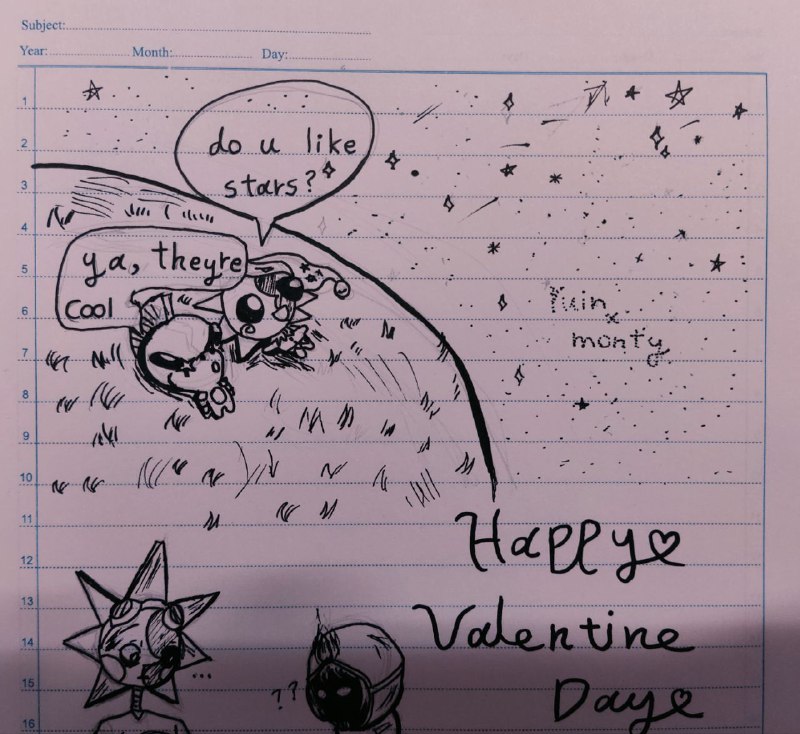 Subject:
Year: Month: Day:
1
2
3
4
5
6
7
8
9
10
11
12
13
14
15
16
do u like
stars?
ya, theyre
Cool
Ruin
x
monty
Happy
Valentine
Day
...
??